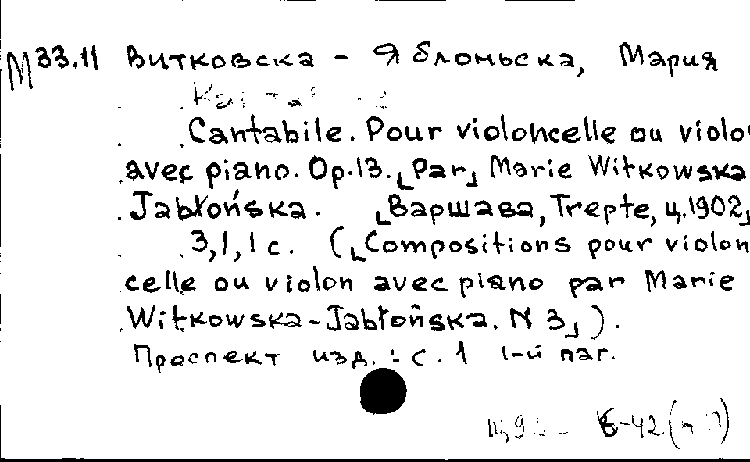 М33.11 Витковска - Яблоньска, Мария
Cantabile. Pour violoncelle ou violo
avec piano. Op.13. [Par] Marie Witkowska
Jabłońska. [Варшава, Trepte, ц.1902]
3,1,1 с. ([Compositions pour violon
celle ou violon avec piano par Marie
Witkowska-Jabłońska. N 3]).
Проспект изд.: с. 1 1-й паг.